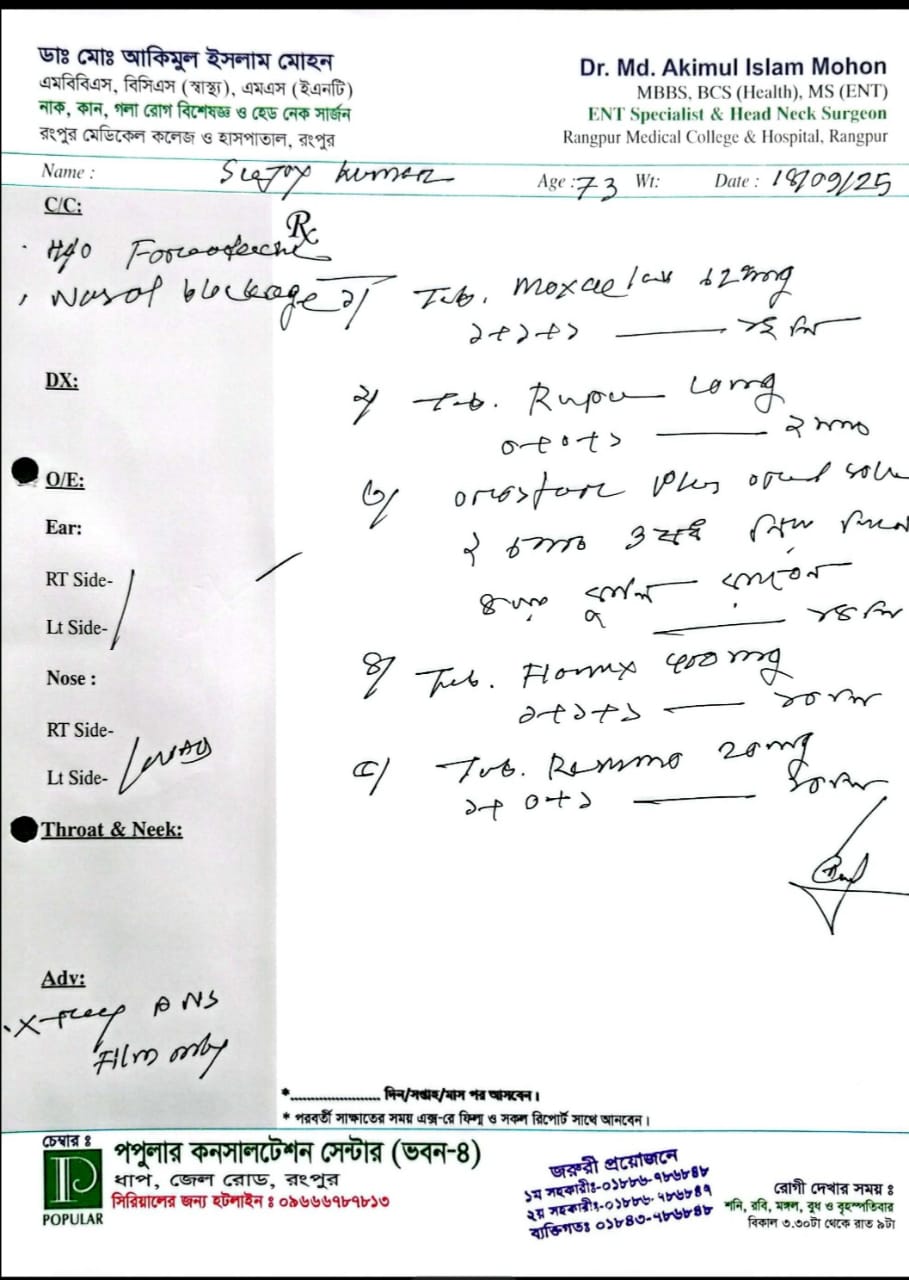 ডাঃ মোঃ আকিমুল ইসলাম মোহন
এমবিবিএস, বিসিএস (স্বাস্থ্য), এমএস (ইএনটি)
নাক, কান, গলা রোগ বিশেষজ্ঞ ও হেড নেক সার্জন
রংপুর মেডিকেল কলেজ ও হাসপাতাল, রংপুর
Dr. Md. Akimul Islam Mohon
MBBS, BCS (Health), MS (ENT)
ENT Specialist & Head Neck Surgeon
Rangpur Medical College & Hospital, Rangpur
Name : Kumar
Age : 73 Wt: Date : 18/09/25
C/C:
H/O
Nasal blockage
DX:
O/E:
Ear:
RT Side-
Lt Side-
Nose :
RT Side-
Lt Side-
Throat & Neek:
Adv:
X-ray PNS
Film only
Rx
১/ Tab.
১+১+১
২/ Tab. 10mg
০+০+১ ২ মাস
৩/ Plus oral
২ চামচ ঔষধ
১৪ দিন
৪/ Tab. 400mg
১+১+১ ১০ দিন
৫/ Tab. 20mg
১+০+১ ১০ দিন
*...................... দিন/সপ্তাহ/মাস পর আসবেন।
* পরবর্তী সাক্ষাতের সময় এক্স-রে ফিল্ম ও সকল রিপোর্ট সাথে আনবেন।
চেম্বার ঃ
POPULAR
পপুলার কনসালটেশন সেন্টার (ভবন-৪)
ধাপ, জেল রোড, রংপুর
সিরিয়ালের জন্য হটলাইন ঃ ০৯৬৬৬৭৮৭৮১৩
জরুরী প্রয়োজনে
১ম সহকারীঃ-০১৮৮৬-৭৮৬৮৪৮
২য় সহকারীঃ-০১৮৮৬-৭৮৬৮৪৭
ব্যক্তিগতঃ ০১৮৪৩-৭৮৬৮৪৮
রোগী দেখার সময় ঃ
শনি, রবি, মঙ্গল, বুধ ও বৃহস্পতিবার
বিকাল ৩.৩০টা থেকে রাত ৯টা